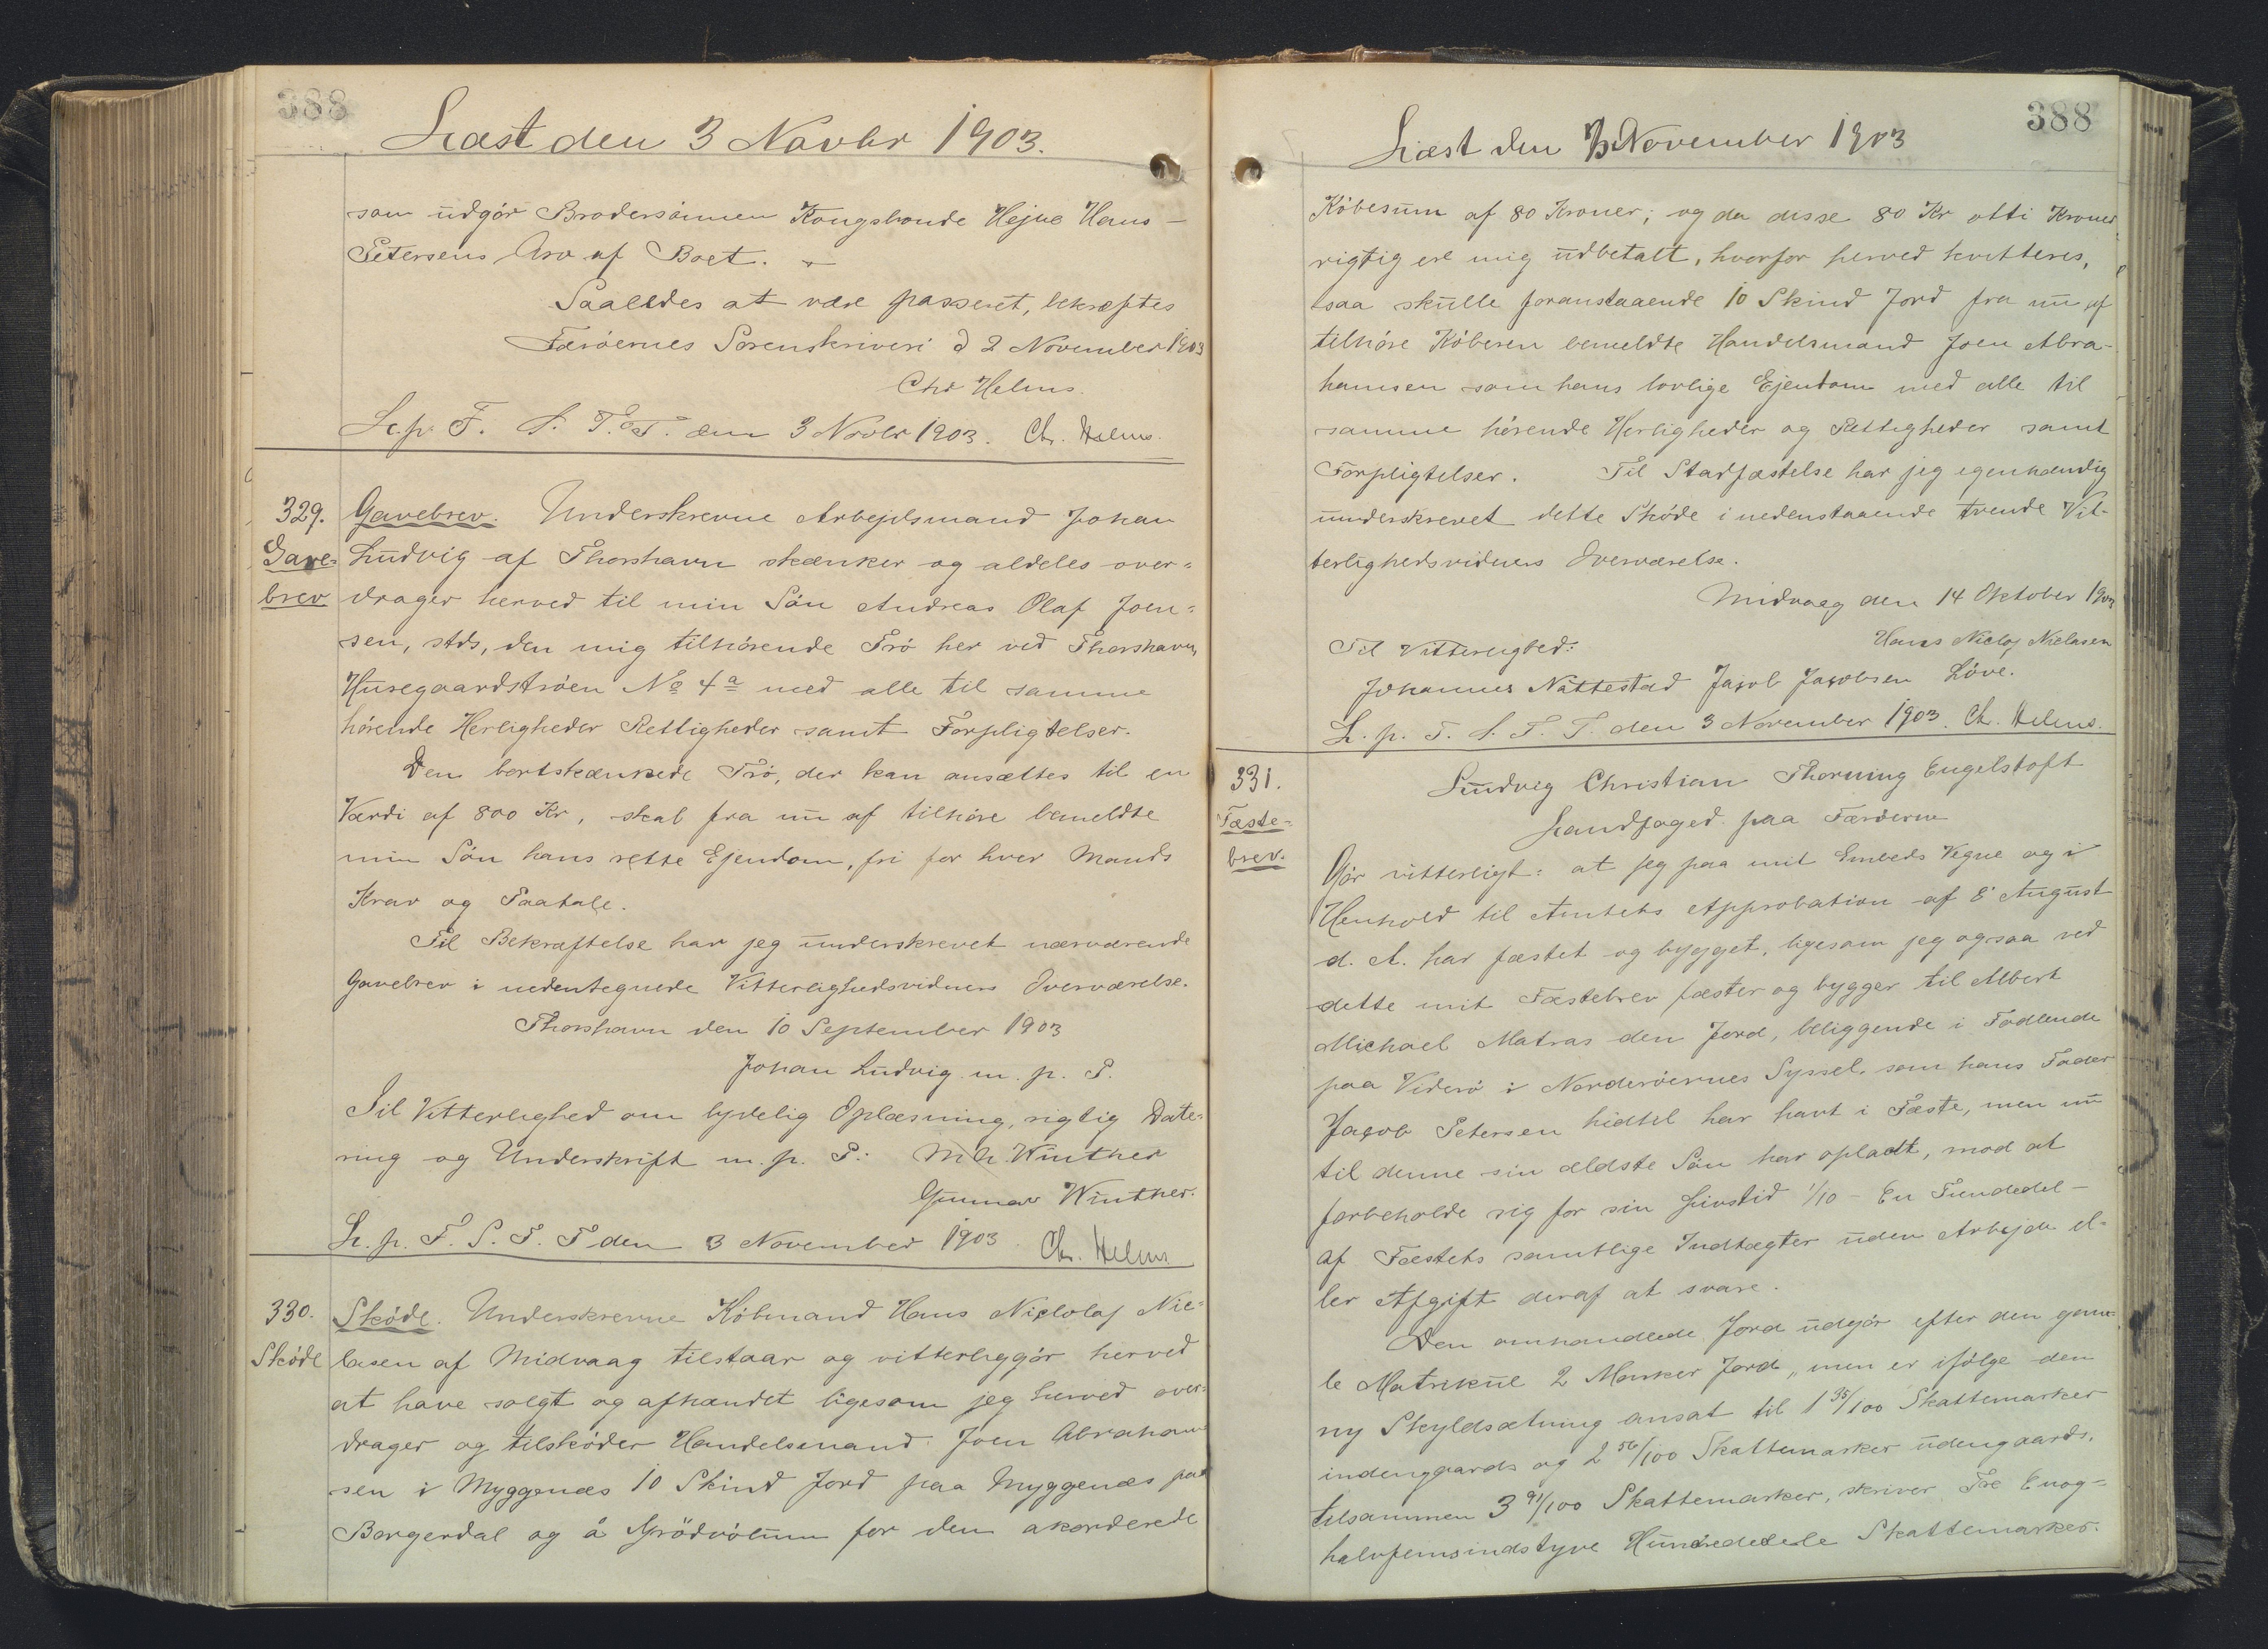 388
Læst den 3 Novbr 1903.
som udgör Brodersönnen Kongsbonde Hejne Hans-
Petersens Arv af Boet.
Saaledes at være passeret, bekræftes
Færöernes Sorenskriveri d 2 November 1903
Chr Helms.
L. p. F. S. T. T. den 3 Novbr 1903. Ch. Helms.
329.
Gave-
brev
Gavebrev. Underskrevne Arbejdsmand Johan
Ludvig af Thorshavn skænker og aldeles over-
drager herved til min Sön Andreas Olaf Joen-
sen, stds, den mig tilhörende Trö her ved Thorshavn,
Husegaardströen No 4a med alle til samme
hörende Herligheder Rettigheder samt Forpligtelser.
Den bortskænkede Trö, der kan ansættes til en
Værdi af 800 Kr, skal fra nu af tilhöre bemeldte
min Sön hans rette Ejendom, fri for hver Mands
Krav og Paatale.
Til Bekræftelse har jeg underskrevet nærværende
Gavebrev i nedentegnede Vitterlighedsvidners Overværelse.
Thorshavn den 10 September 1903
Johan Ludvig m. p. P.
Til Vitterlighed om lydelig Oplæsning, rigtig Date-
ring og Underskrift m. p. P: M A Winther
Gunnar Winther.
L. p. F. S. T. T den 3 November 1903 Ch. Helms
330.
Sköde
Sköde. Underskrevne Köbmand Hans Niclolaj Nic-
lasen af Midvaag tilstaar og vitterliggör herved
at have solgt og afhændet ligesom jeg herved over-
drager og tilsköder Handelsmand Joen Abraham-
sen i Myggenæs 10 Skind Jord paa Myggenæs paa
Borgerdal og å Grödvölum for den akorderede
388
Læst den 3 November 1903
Köbesum af 80 Kroner; og da disse 80 Kr otti Kroner
rigtig ere mig udbetalt, hvorfor herved kvitteres,
saa skulle foranstaaende 10 Skind Jord fra nu af
tilhöre Köberen bemeldte Handelsmand Joen Abra-
hamsen som hans lovlige Ejendom med alle til
samme hörende Herligheder og Rettigheder samt
Forpligtelser. Til Stadfæstelse har jeg egenhændig
underskrevet dette Sköde i nedenstaaende tvende Vit-
terlighedsvidners Overværelse.
Midvaag den 14 Oktober 1903
Til Vitterlighed: Hans Niclaj Nielasen
Johannes Nattestad Jacob Jacobsen Löve.
L. p. F. S. T. T. den 3 November 1903. Ch. Helms.
331.
Fæste-
brev.
Ludvig Christian Thorning Engelstoft
Landfoged paa Færöerne
Gör vitterligt: at jeg paa mit Embeds Vegne og i
Henhold til Amtets Approbation af 8' August
d. A. har fæstet og bygget, ligesom jeg ogsaa ved
dette mit Fæstebrev fæster og bygger til Albert
Michael Matras den Jord, beliggende i Fodlende
paa Viderö i Norderöernes Syssel, som hans Fader
Jacob Petersen hidtil har havt i Fæste, men nu
til denne sin ældste Sön har opladt, mod at
forbeholde sig for sin Livstid 1/10 - En Tiendedel -
af Fæstets samtlige Indtægter uden Arbejde el-
ler Afgift deraf at svare.
Den omhandlede Jord udgör efter den gam-
le Matrikul 2 Marker Jord, men er ifölge den
ny Skyldsætning ansat til 1 35/100 Skattemarker
indengaards og 2 56/100 Skattemarker udengaards,
tilsammen 3 91/100 Skattemarker, skriver Tre Enog-
halvfemsindstyve Hundrededele Skattemarker.